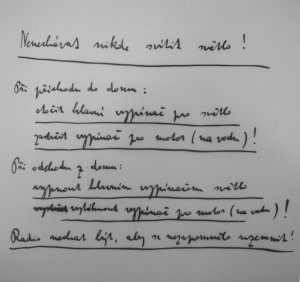 Nenechávat nikde svítit světlo !
Při příchodu do domu :
otočit hlavní vypínač pro světlo
vypínač pro motor (na vodu) !
Při odchodu z domu:
vypnout hlavním vypínačem světlo
vytáhnout vypínač pro motor (na vodu) !
Radio nechat být, aby se nezapomnělo uzemnit !